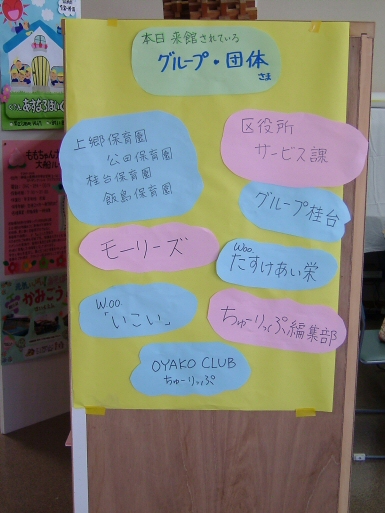 本日 来館されている
グループ・団体
さま
上郷保育園
公田保育園
桂台保育園
飯島保育園
区役所
サービス課
グループ桂台
モーリーズ
Woo.
たすけあい栄
Woo.
「いこい」
ちゅーりっぷ編集部
OYAKO CLUB
ちゅーりっぷ
あすなろほいく
かみごう